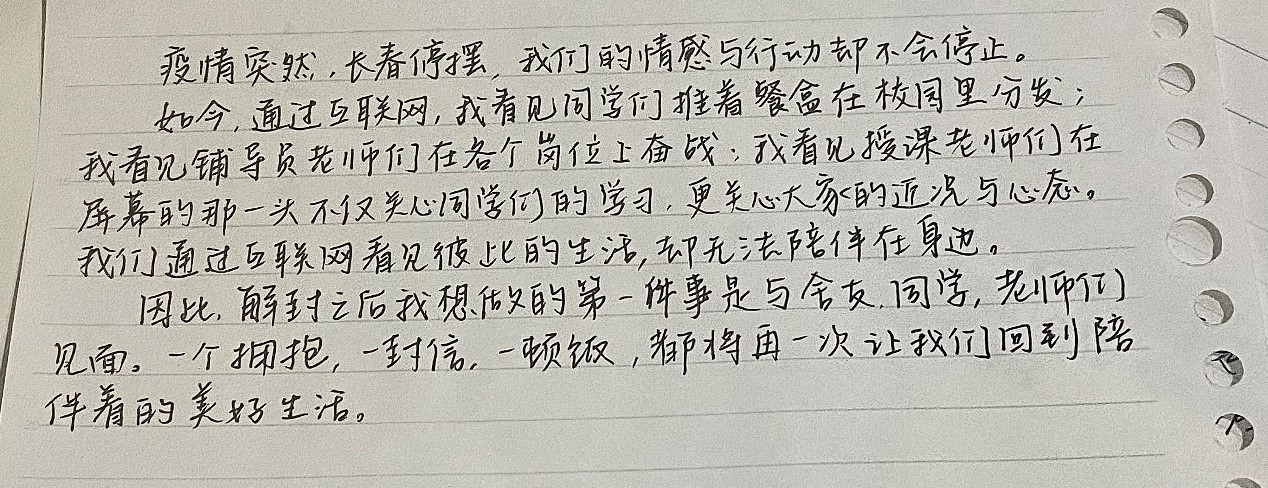 疫情突然，长春停摆，我们的情感与行动却不会停止。
如今，通过互联网，我看见同学们推着餐盒在校园里分发；
我看见辅导员老师们在各个岗位上奋战；我看见授课老师们在
屏幕的那一头不仅关心同学们的学习，更关心大家的近况与心态。
我们通过互联网看见彼此的生活，却无法陪伴在身边。
因此，解封之后我想做的第一件事是与舍友、同学，老师们
见面。一个拥抱，一封信，一顿饭，都将再一次让我们回到陪
伴着的美好生活。